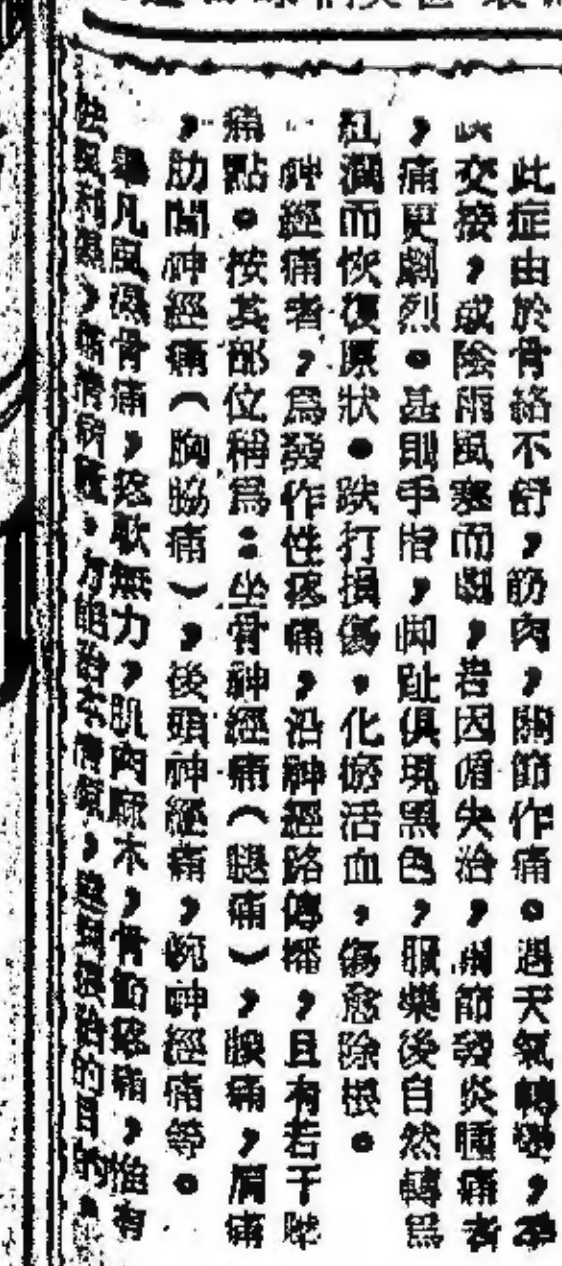 此症由於骨絡不舒,筋肉,關節作痛。遇天氣轉變,季
候交接,或陰雨風寒而劇,若因循失治,關節發炎腫痛者
,痛更劇烈。甚則手指,脚趾俱現黑色,服藥後自然轉爲
紅潤而恢復原狀。跌打損傷,化瘀活血,傷愈除根。
神經痛者,爲發作性疼痛,沿神經路傳播,且有若干壓
痛點。按其部位稱爲:坐骨神經痛(腿痛),腰痛,肩痛
,肋間神經痛(胸脇痛),後頭神經痛,腕神經痛等。
舉凡風濕骨痛,痠軟無力,肌肉麻木,骨節疼痛,惟有
袪風利濕,方能治本清源,的目的。